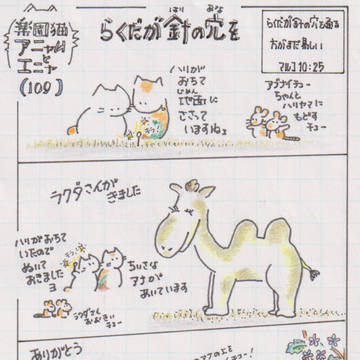 楽園猫
アニャwith
と
エニャ
(109)
らくだが針の穴を
はり
あな
らくだが針の穴を通る
方がまだ易しい
マルコ10:25
ハリが
おちて
じめん
地面に
ささって
いますねぇ
アブナイチュー
ちゃんと
ハリヤマに
もどす
チュー
ラクダさんが
きました
ハリがおちて
いたので
ぬいて
おきました
ヨ
ちいさな
アナが
あいています
ラクダさん
おおきい
チュー
ありがとう